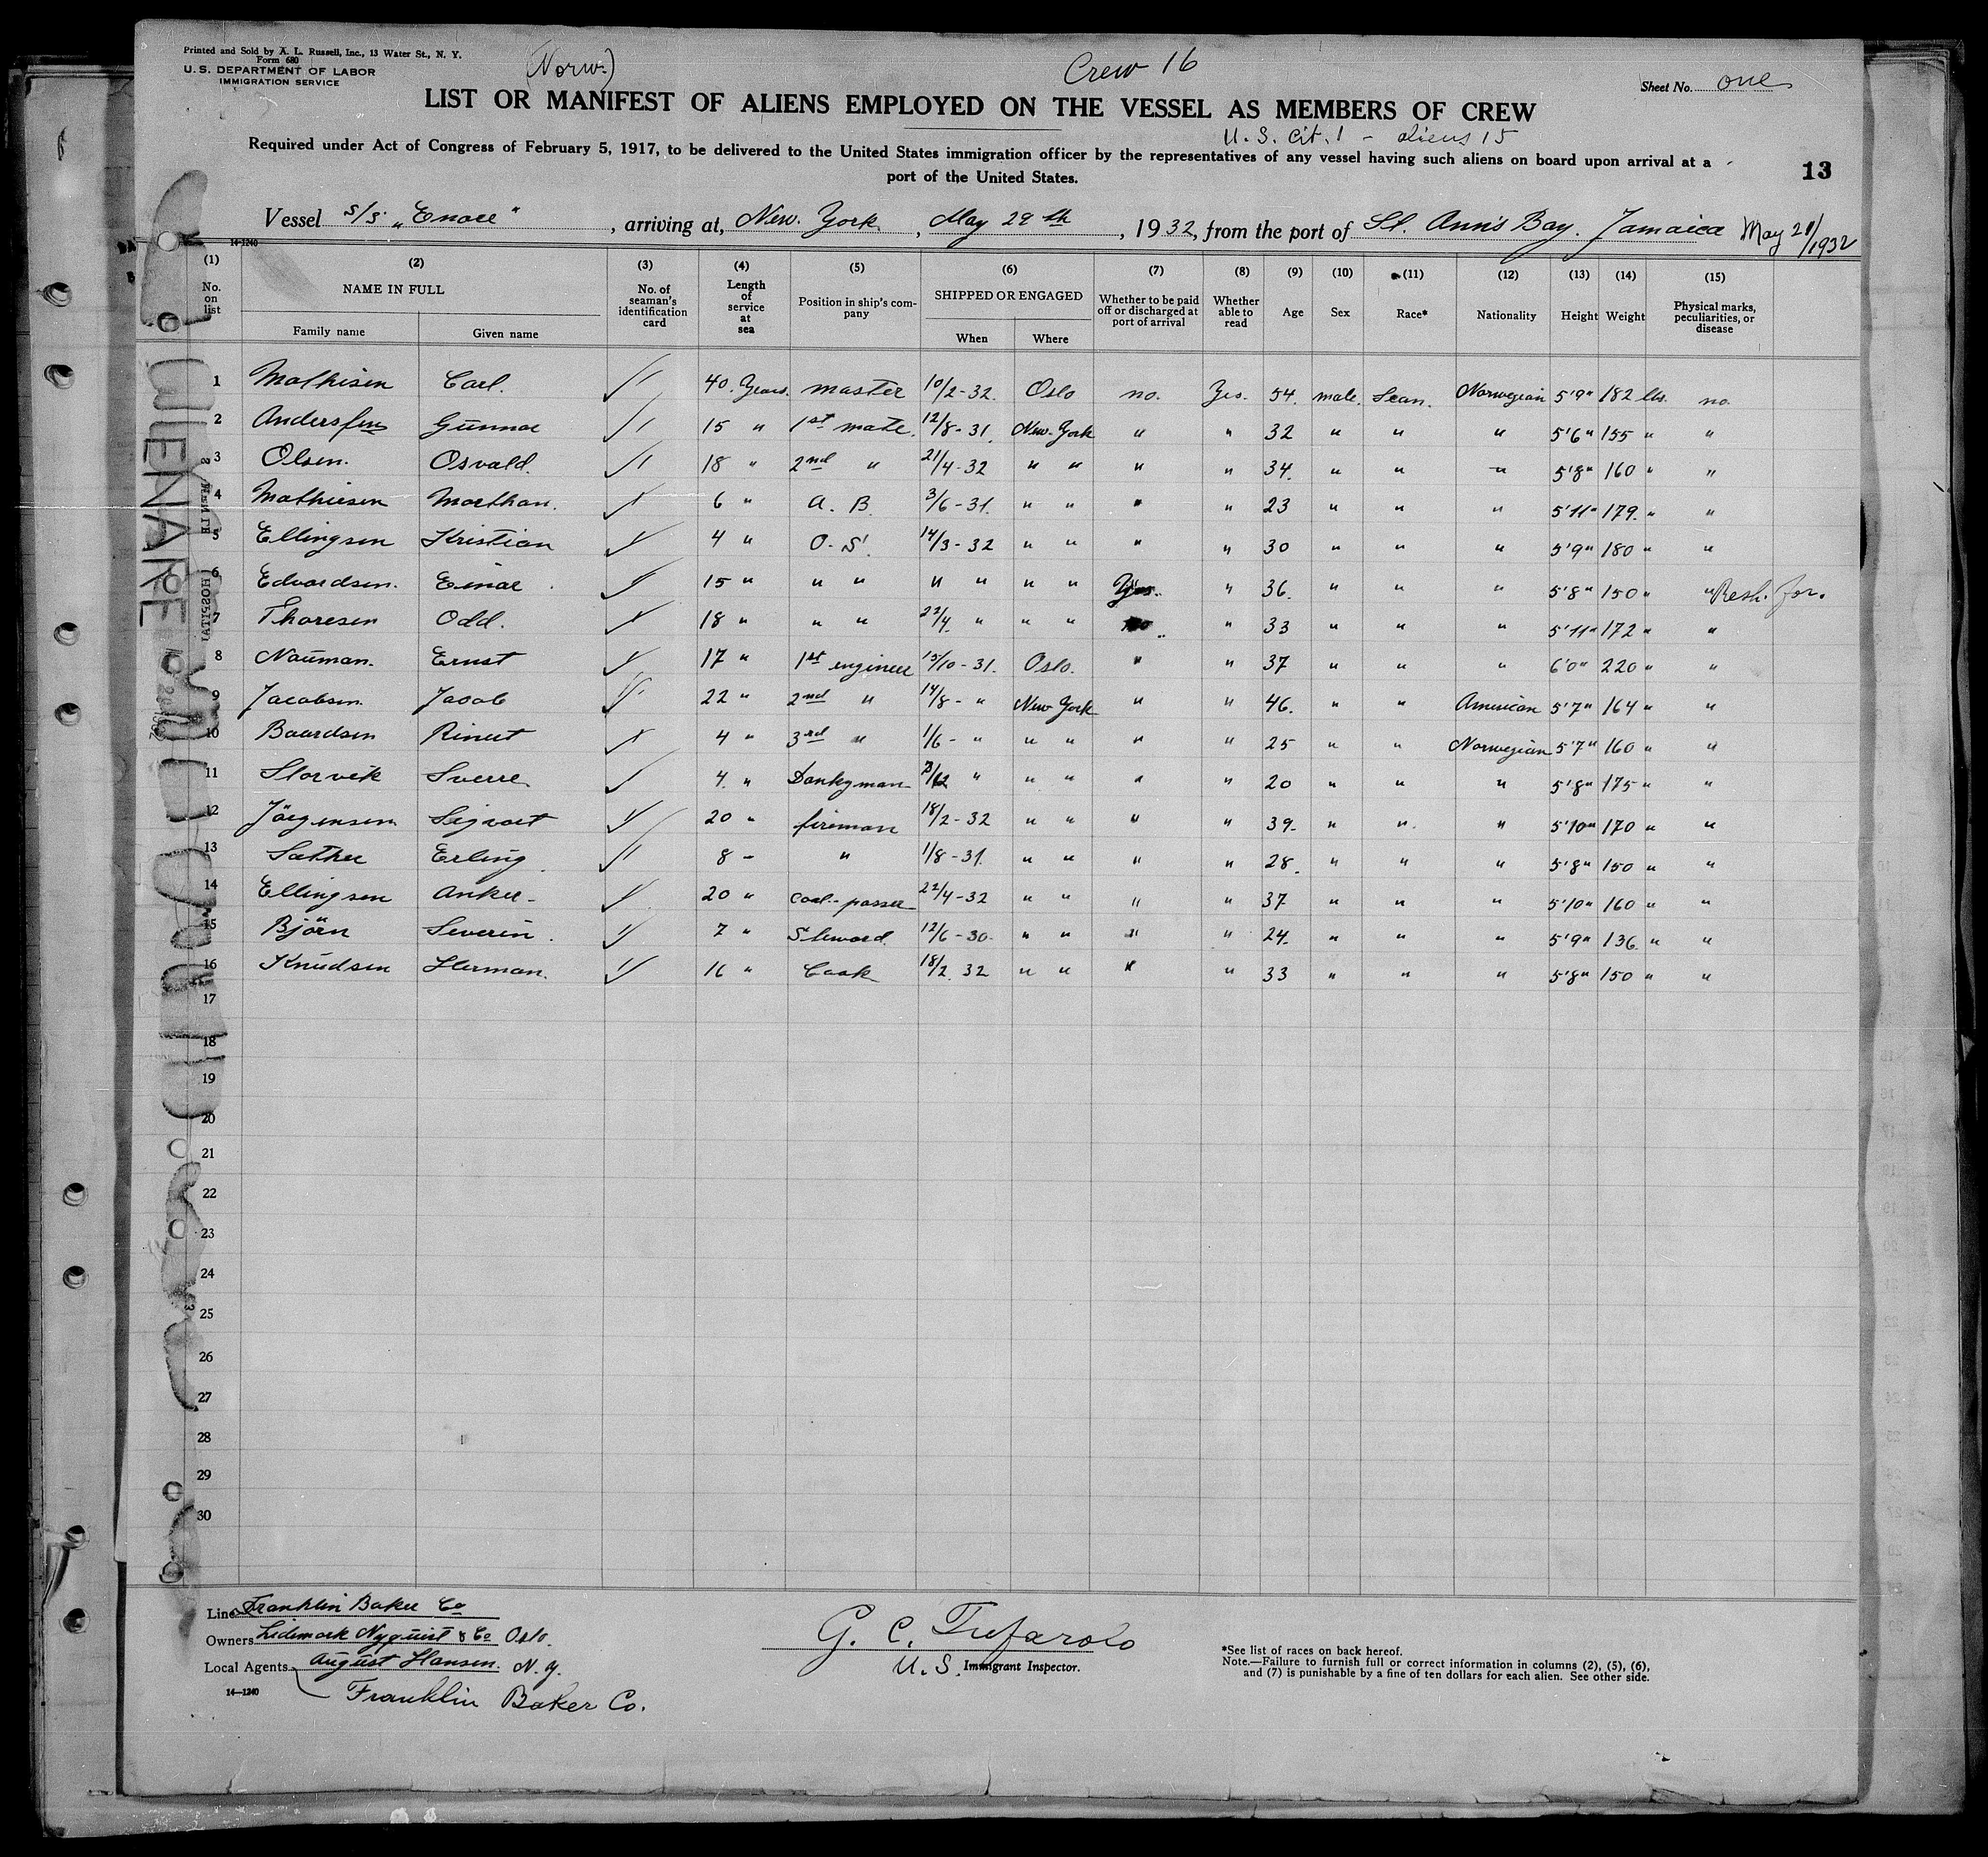 Printed and Sold by A. L. Russell, Inc., 13 Water St., N. Y.
Form 680
U. S. DEPARTMENT OF LABOR
IMMIGRATION SERVICE
(Norw.)
Crew 16
Sheet No. one
LIST OR MANIFEST OF ALIENS EMPLOYED ON THE VESSEL AS MEMBERS OF CREW
U. S. Cit. 1 - aliens 15
Required under Act of Congress of February 5, 1917, to be delivered to the United States immigration officer by the representatives of any vessel having such aliens on board upon arrival at a
port of the United States.
13
Vessel S/S. „Enare" , arriving at, New York , May 29th , 1932, from the port of St. Ann's Bay. Jamaica May 21/1932
14-1240
(1) (2) (3) (4) (5) (6) (7) (8) (9) (10) (11) (12) (13) (14) (15)
No. on list NAME IN FULL No. of seaman's identification card Length of service at sea Position in ship's company SHIPPED OR ENGAGED Whether to be paid off or discharged at port of arrival Whether able to read Age Sex Race* Nationality Height Weight Physical marks, peculiarities, or disease
Family name Given name When Where
1 Mathisen Carl. 40 Years. master 10/2-32. Oslo no. Yes. 54. male. Scan. Norwegian 5'9" 182 lbs. no.
2 Anderssen Gunnar 15 " 1st mate. 12/8-31. New-York " " 32 " " " 5'6" 155 " "
3 Olsen. Osvald. 18 " 2nd " 21/4-32 " " " " 34. " " " 5'8" 160 " "
4 Mathiesen Morthan. 6 " A. B. 3/6-31. " " " " 23 " " " 5'11" 179. " "
5 Ellingsen Kristian 4 " O. S. 14/3-32 " " " " 30 " " " 5'9" 180 " "
6 Edvardsen. Einar 15 " " " " " " " Yes. " 36. " " " 5'8" 150 " "
7 Thoresen Odd. 18 " " " 22/4. " " " no " 33 " " " 5'11" 172 " "
8 Nauman. Ernst 17 " 1st engineer 15/10-31. Oslo. " " 37 " " " 6'0" 220 " "
9 Jacobsen. Jacob 22 " 2nd " 14/8- " New York " " 46. " " American 5'7" 164 " "
10 Baardsen Rinert 4 " 3rd " 1/6- " " " " " 25 " " Norwegian 5'7" 160 " "
11 Storvik Sverre 4. " Donkyman " " " " " 20 " " " 5'8" 175 " "
12 Jörgensen Sigvart 20 " fireman 18/2-32 " " " " 39. " " " 5'10" 170 " "
13 Sather Erling 8 - " 1/8-31. " " " " 28. " " " 5'8" 150 " "
14 Ellingsen Anker 20 " Coal-passer 22/4-32 " " " " 37 " " " 5'10" 160 " "
15 Björn Severin. 7 " Steward. 12/6-30. " " " " 24. " " " 5'9" 136 " "
16 Knudsen Herman. 16 " Cook 18/2. 32 " " " " 33 " " " 5'8" 150 " "
17
18
19
20
21
22
23
24
25
26
27
28
29
30
ENARE
Line Franklin Baker Co
Owners Nyquist & Co Oslo.
Local Agents August Hansen. N. Y.
Franklin Baker Co.
14—1240
G. C. Tufarolo
U. S. Immigrant Inspector.
*See list of races on back hereof.
Note.—Failure to furnish full or correct information in columns (2), (5), (6),
and (7) is punishable by a fine of ten dollars for each alien. See other side.